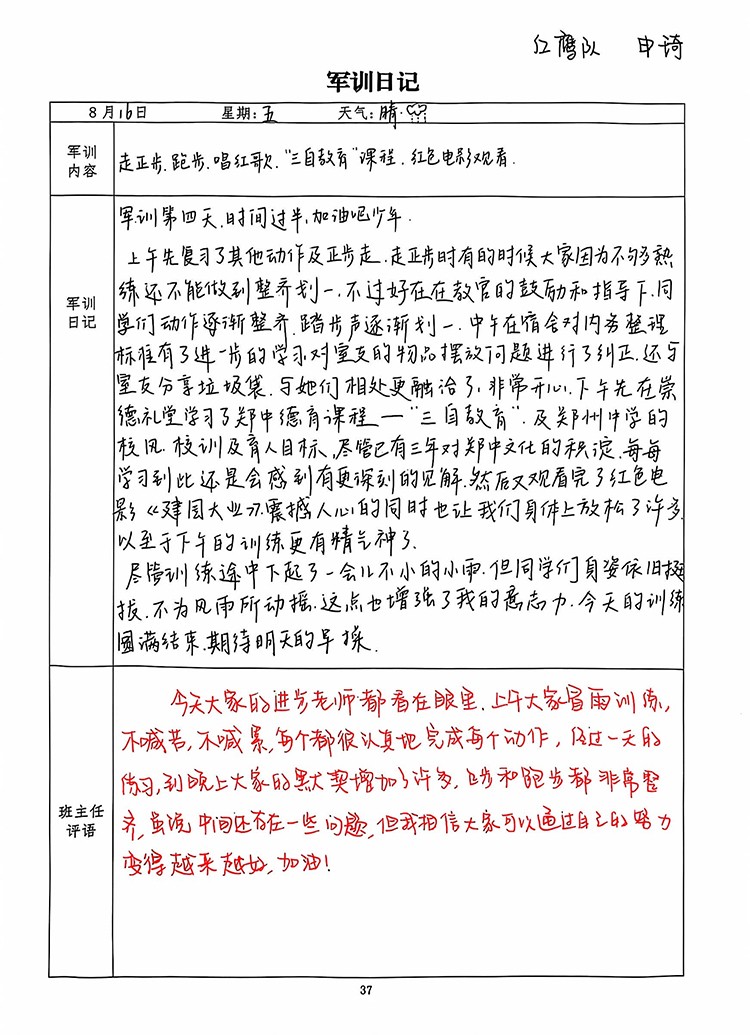 红鹰队 申琦
军训日记
8月16日 星期:五 天气:晴.
军训内容
走正步.跑步.唱红歌.“三自教育”课程.红色电影观看.
军训日记
军训第四天.时间过半.加油吧少年.
上午先复习了其他动作及正步走.走正步时有的时候大家因为不够熟
练还不能做到整齐划一.不过好在在教官的鼓励和指导下.同
学们动作逐渐整齐.踏步声逐渐划一.中午在宿舍对内务整理
标准有了进一步的学习对室友的物品摆放问题进行了纠正.还与
室友分享垃圾袋.与她们相处更融洽了.非常开心.下午先在崇
德礼堂学习了郑中德育课程—“三自教育”.及郑州中学的
校风.校训及育人目标.尽管已有三年对郑中文化的积淀.每每
学习到此还是会感到有更深刻的见解.然后又观看完了红色电
影《建国大业》.震撼人心的同时也让我们身体上放松了许多.
以至于下午的训练更有精气神了.
尽管训练途中下起了一会儿不小的小雨.但同学们身姿依旧挺
拔.不为风雨所动摇.这点也增强了我的意志力.今天的训练
圆满结束.期待明天的早操.
班主任评语
今天大家的进步老师都看在眼里.上午大家冒雨训练,
不喊苦,不喊累,每个都很认真地完成每个动作,经过一天的
练习,到晚上大家的默契增加了许多,正步和跑步都非常整
齐,虽说中间还存在一些问题,但我相信大家可以通过自己的努力
变得越来越好,加油!
37